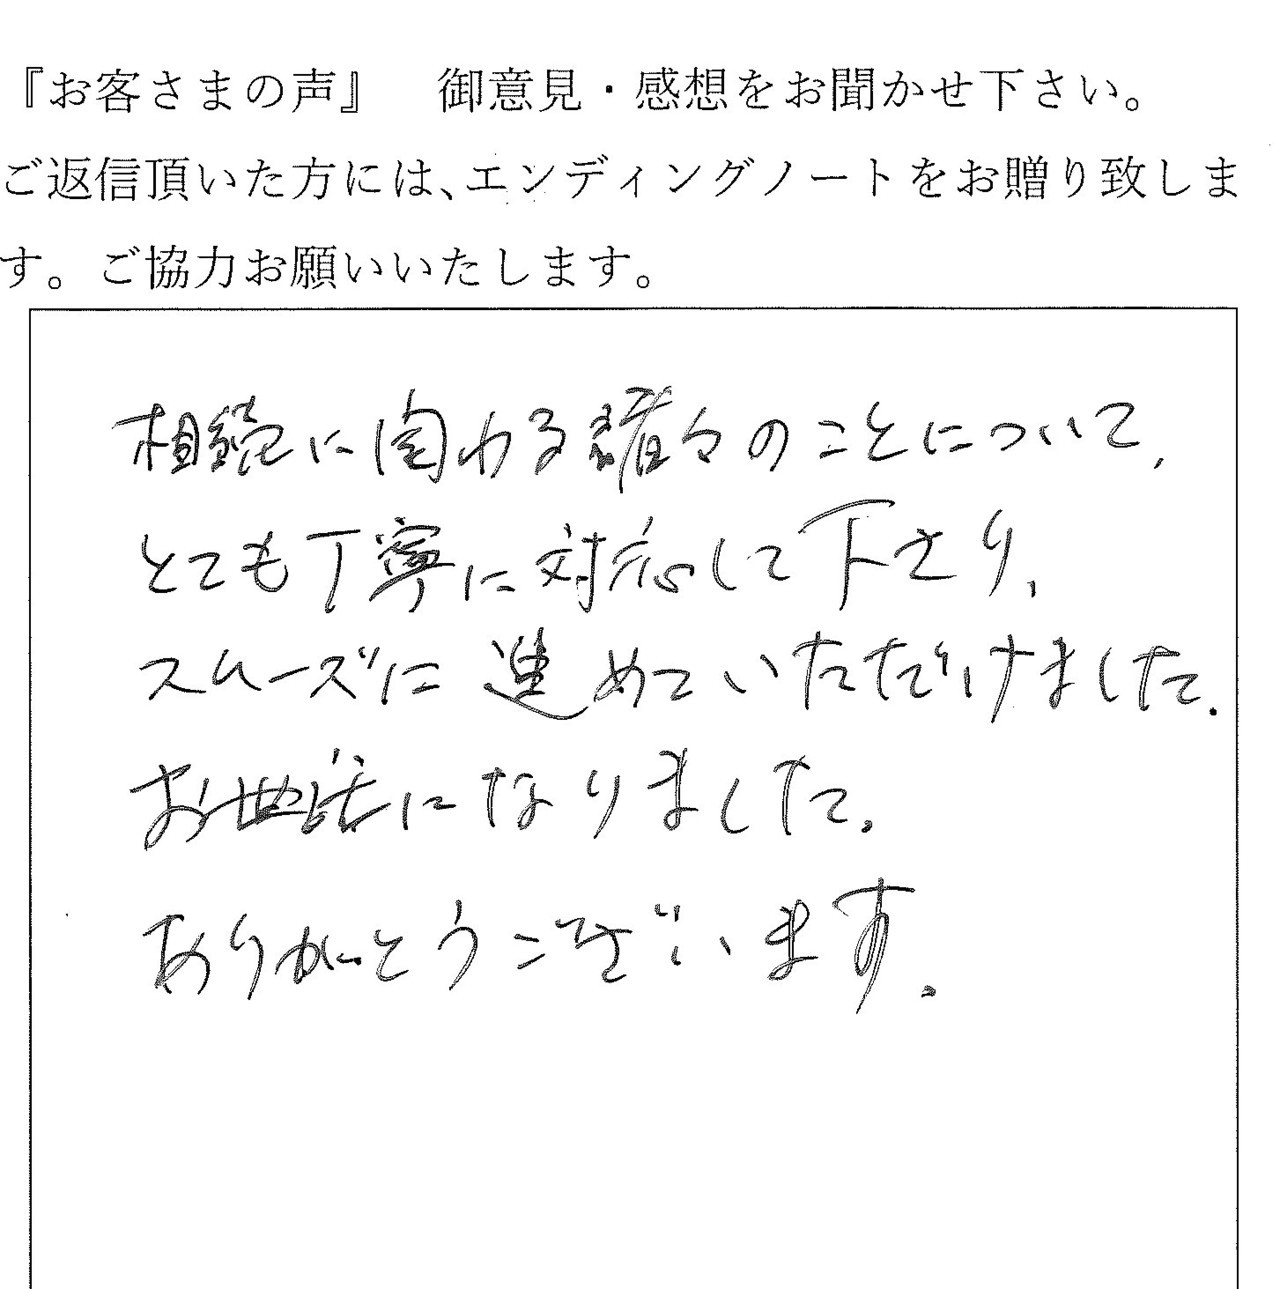 『お客さまの声』　御意見・感想をお聞かせ下さい。
ご返信頂いた方には、エンディングノートをお贈り致しま
す。ご協力お願いいたします。
相続に関わる諸々のことについて、
とても丁寧に対応して下さり、
スムーズに進めていただけました。
お世話になりました。
ありがとうございます。